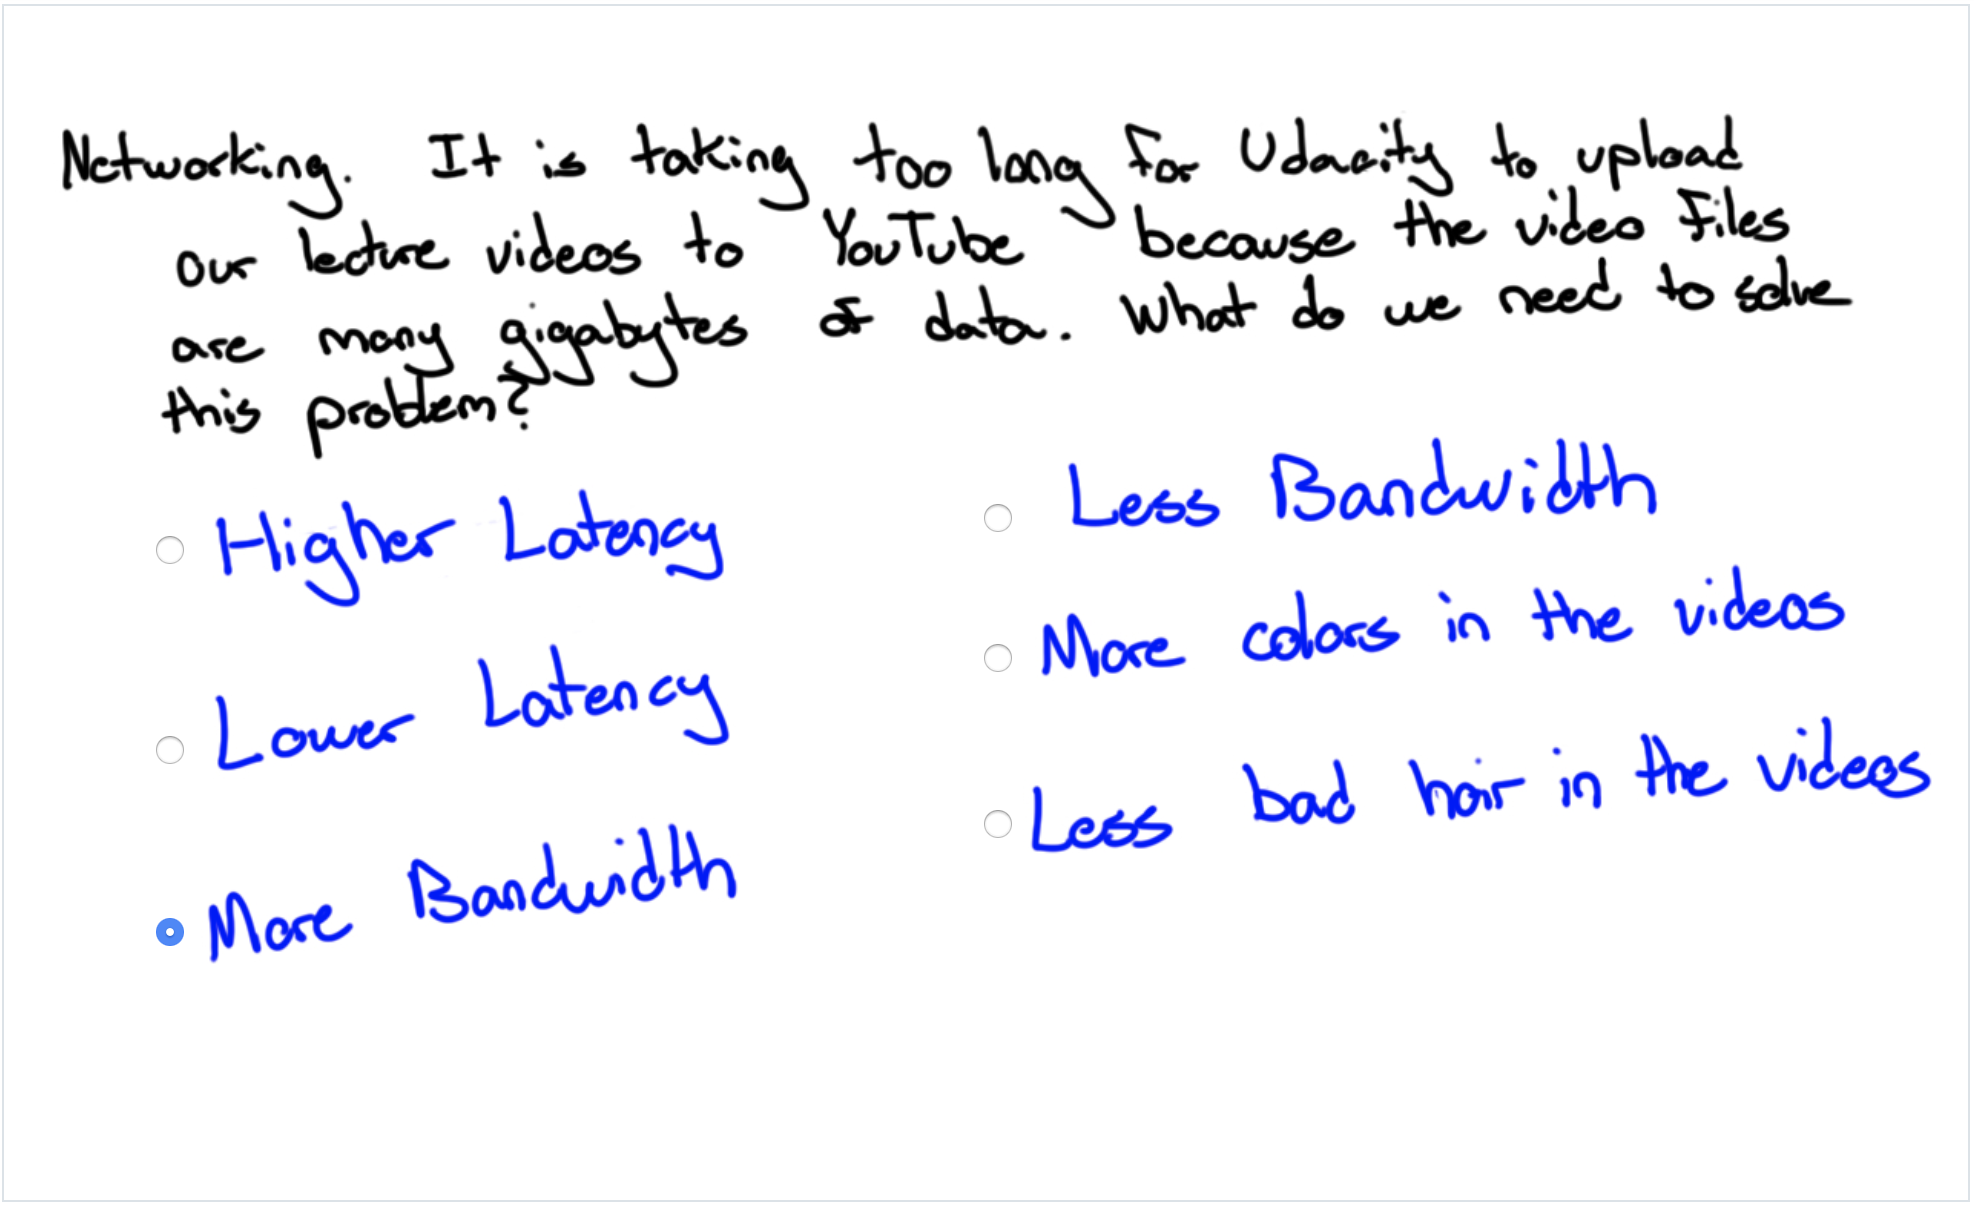 Networking. It is taking too long for Udacity to upload
our lecture videos to YouTube because the video files
are many gigabytes of data. What do we need to solve
this problem?
Higher Latency
Lower Latency
More Bandwidth
Less Bandwidth
More colors in the videos
Less bad hair in the videos